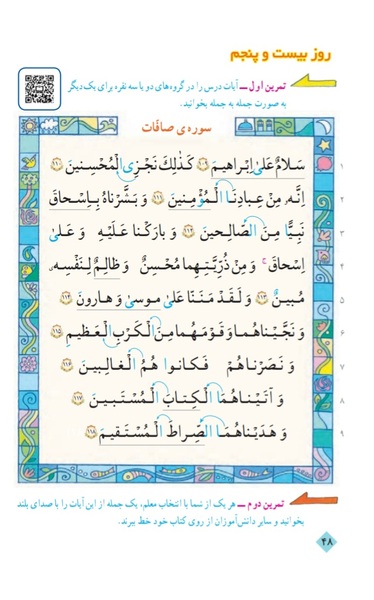 روز بیست و پنجم
تمرین اول ــ آیات درس را در گروه‌های دو یا سه نفره برای یک‌دیگر
به صورت جمله به جمله بخوانید.
سوره‌ی صافّات
۱ سَلامٌ عَلىٰ اِبْراهيمَ ﴿١٠٩﴾ كَذٰلِكَ نَجْزِي الْمُحْسِنينَ ﴿١١٠﴾
۲ اِنَّهُ مِنْ عِبادِنَا الْمُؤْمِنينَ ﴿١١١﴾ وَ بَشَّرْناهُ بِاِسْحاقَ
۳ نَبِيًّا مِنَ الصّالِحينَ ﴿١١٢﴾ وَ بارَكْنا عَلَيْهِ وَ عَلىٰ
۴ اِسْحاقَ ۚ وَ مِنْ ذُرِّيَّتِهِما مُحْسِنٌ وَ ظالِمٌ لِنَفْسِهِ
۵ مُبينٌ ﴿١١٣﴾ وَ لَقَدْ مَنَنّا عَلىٰ موسىٰ وَ هارونَ ﴿١١٤﴾
۶ وَ نَجَّيْناهُما وَ قَوْمَهُما مِنَ الْكَرْبِ الْعَظيمِ ﴿١١٥﴾
۷ وَ نَصَرْناهُمْ فَكانوا هُمُ الْغالِبينَ ﴿١١٦﴾
۸ وَ آتَيْناهُمَا الْكِتابَ الْمُسْتَبينَ ﴿١١٧﴾
۹ وَ هَدَيْناهُمَا الصِّراطَ الْمُسْتَقيمَ ﴿١١٨﴾
تمرین دوم ــ هر یک از شما با انتخاب معلم، یک جمله از این آیات را با صدای بلند
بخوانید و سایر دانش‌آموزان از روی کتاب خود خط ببرند.
۴۸